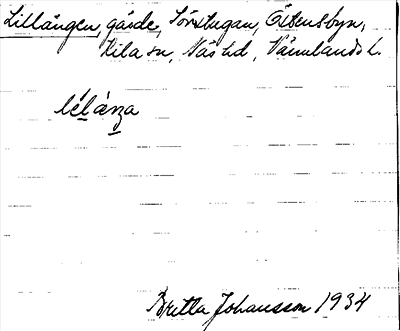 Lillängen, gärde, Lörstugan, Östensbyn,
Kila sn, Näs hd, Värmlands l.
lélänza
Britta Johansson 1934